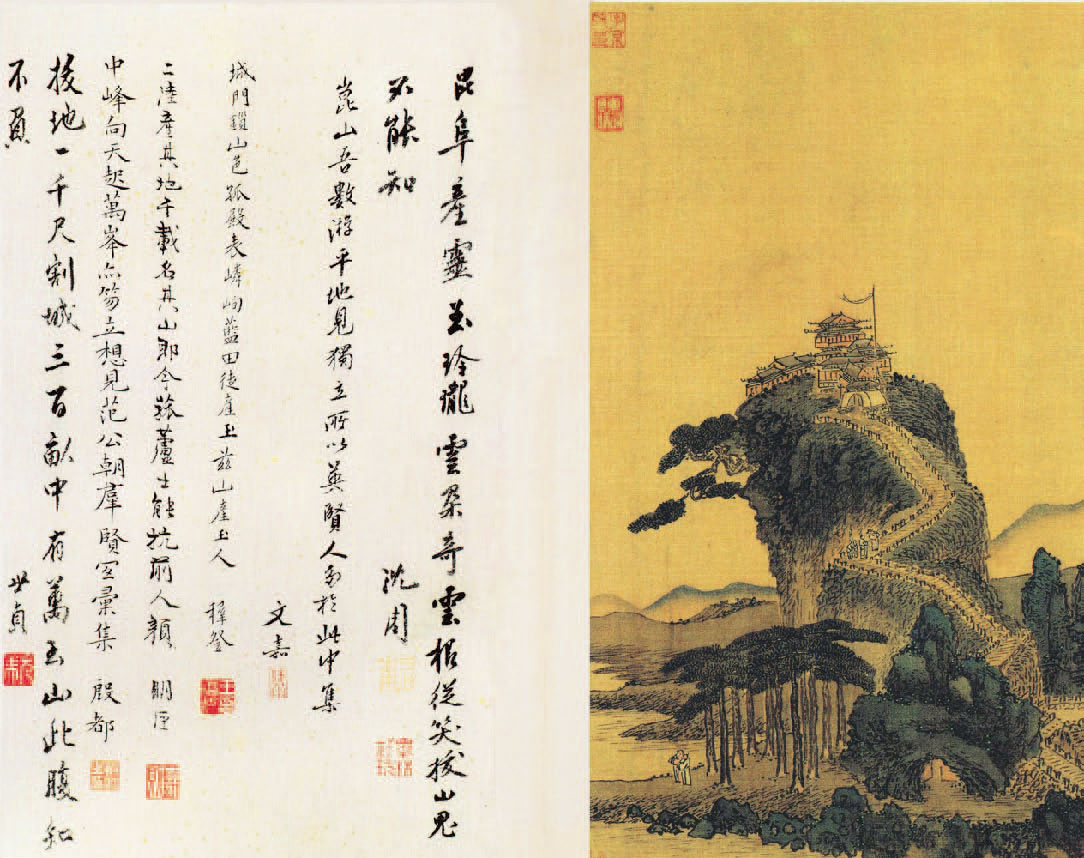 昆阜產靈玉玲瓏雲朶奇雲根從笑拔山鬼
不能知 沈周
崑山吾數游平地見獨立所以英賢人於此中集
文嘉
城門鎖山色孤殿表嶙峋藍田徒產玉茲山產玉人 穉登
二陸產其地千載名其山即今菰蘆士能抗前人顏 明臣
中峰向天起萬峯亦笏立想見范公朝羣賢宛彙集 殷都
拔地一千尺割城三百畝中有萬玉山此腹知
不負 世貞